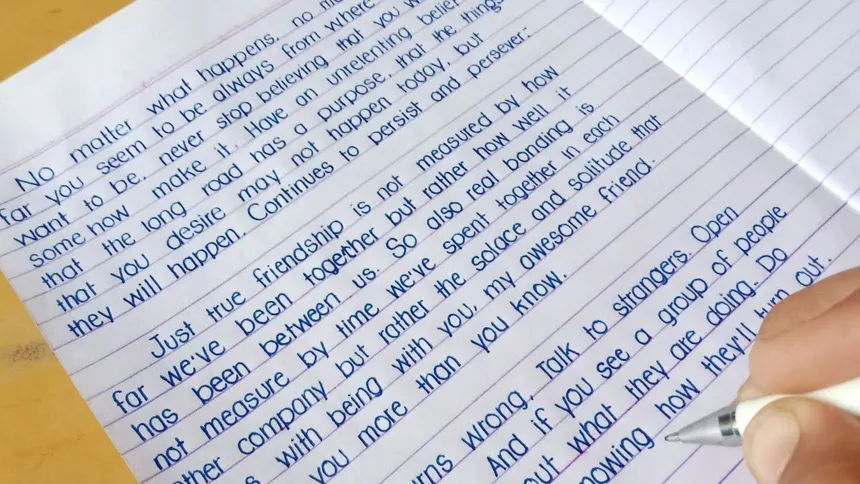 No matter what happens, no
far you seem to be always from where
want to be, never stop believing that you
some how make it. Have an unrelenting belief
that the long road has a purpose, that the things
that you desire may not happen today, but
they will happen. Continues to persist and persever."
Just true friendship is not measured by how
far we've been together but rather how well it
has been between us. So also real bonding is
not measure by time we've spent together in each
other company but rather the solace and solitude that
with being with you, my awesome friend.
you more than you know.
wrong, Talk to strangers. Open
And if you see a group of people
what they are doing. Do
how they'll turn out.